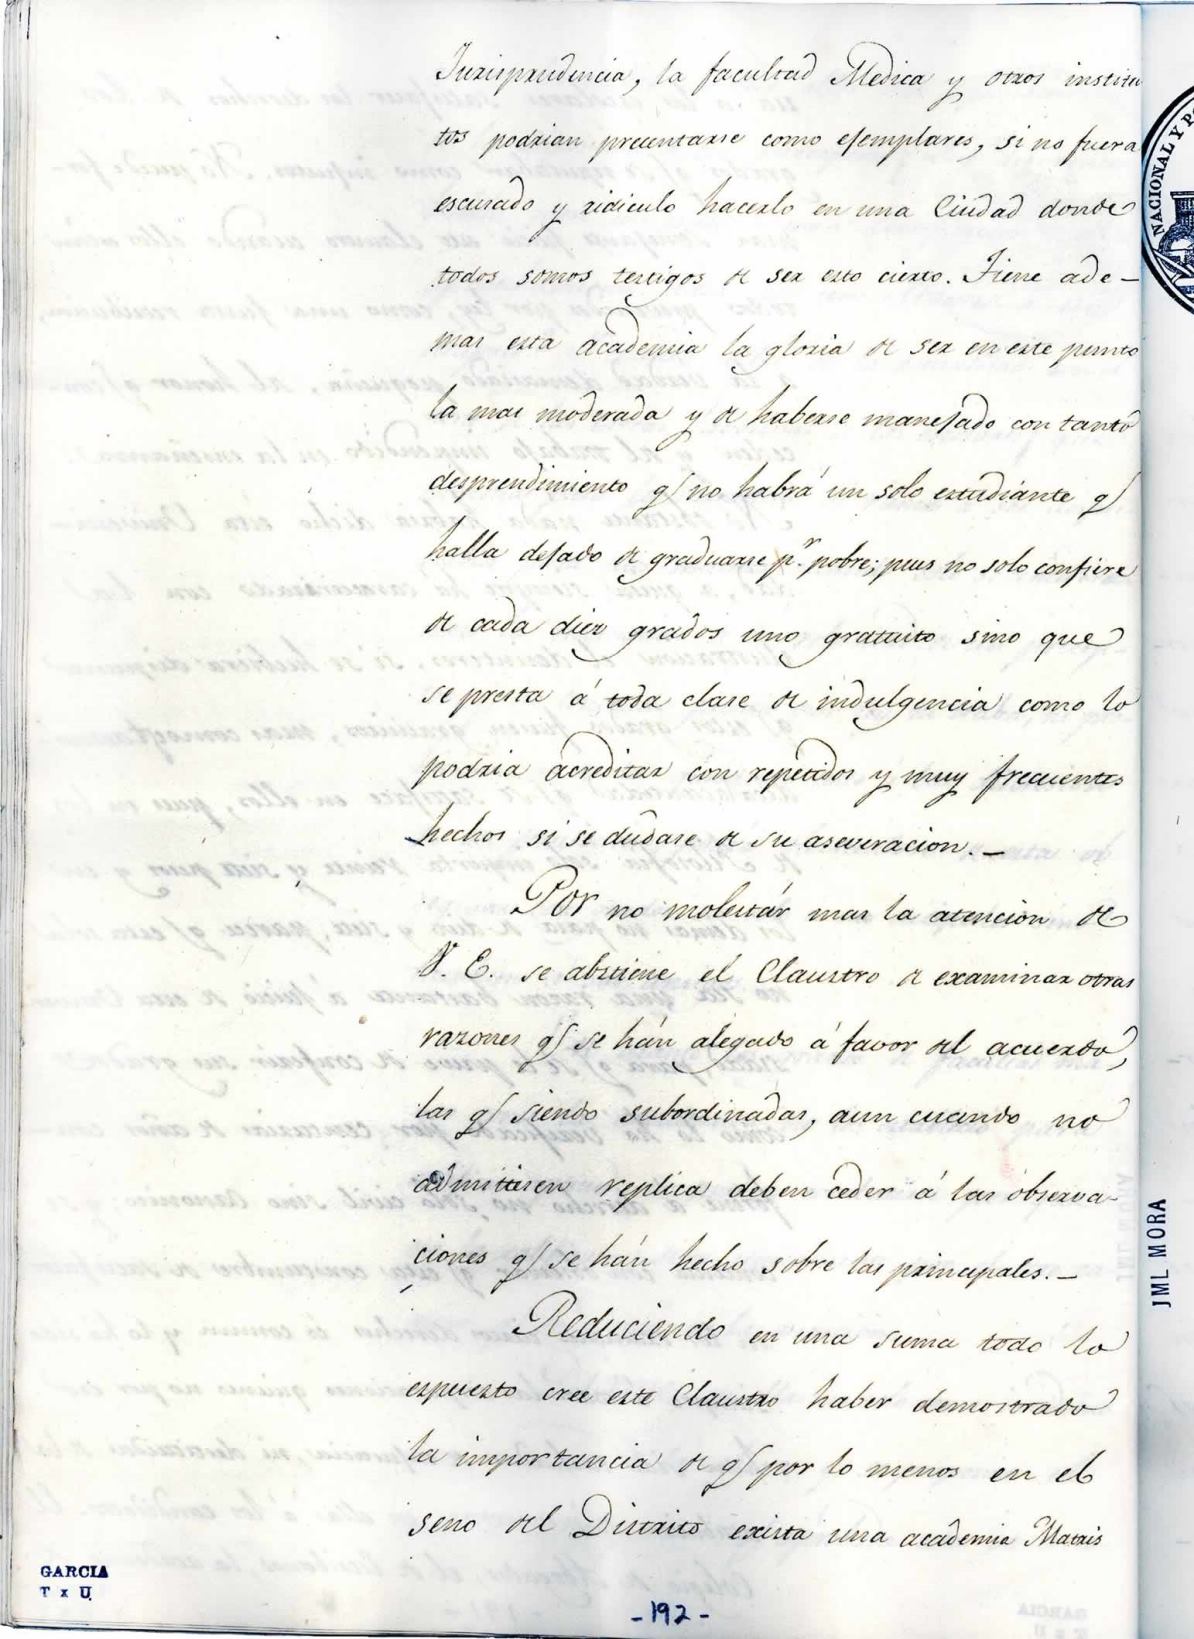 Jurisprudencia, la facultad Medica y otros institu
tos podrian precentarse como ejemplares, si no fuera
escusado y ridiculo hacerlo en una Ciudad donde
todos somos testigos de ser esto cierto. Tiene ade-
mas esta academia la gloria de ser en este punto
la mas moderada y de haberse manejado con tanto
desprendimiento q no habrá un solo estudiante q
halla dejado de graduarse pr. pobre; pues no solo confiere
de cada diez grados uno gratuito sino que
se presta á toda clase de indulgencia como lo
podria acreditar con repetidos y muy frecuentes
hechos si se dudase de su aseveracion. -
Por no molestár mas la atencion de
V. E. se abstiene el Claustro de examinar otras
razones q se hán alegado á favor del acuerdo,
las q siendo subordinadas, aun cuando no
admitiesen replica deben ceder á las observa-
ciones q se hán hecho sobre las principales. -
Reduciendo en una suma todo lo
espuesto cree este Claustro haber demostrado
la importancia de q por lo menos en el
seno del Distrito exista una academia Matris
GARCIA
T x U
- 192 -
NACIONAL Y P
JML MORA